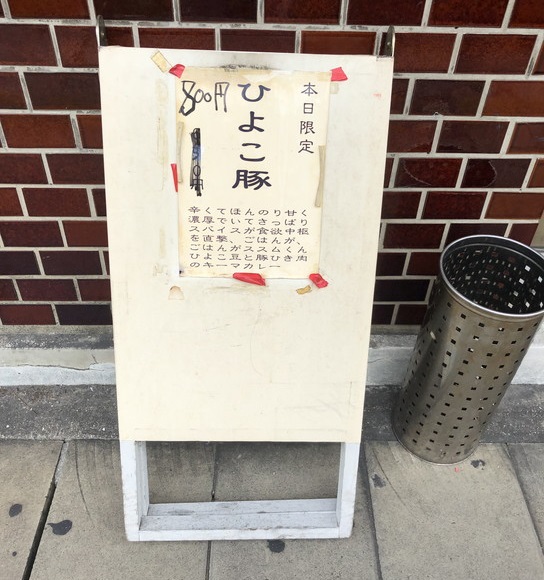 本日限定
ひよこ豚
800円
辛くてほんのり甘く
濃厚でいてさっぱり
スパイスが食欲中枢
を直撃、ごはんが、
ごはんがススムくん
ひよこ豆と豚ひき肉
のキーマカレー